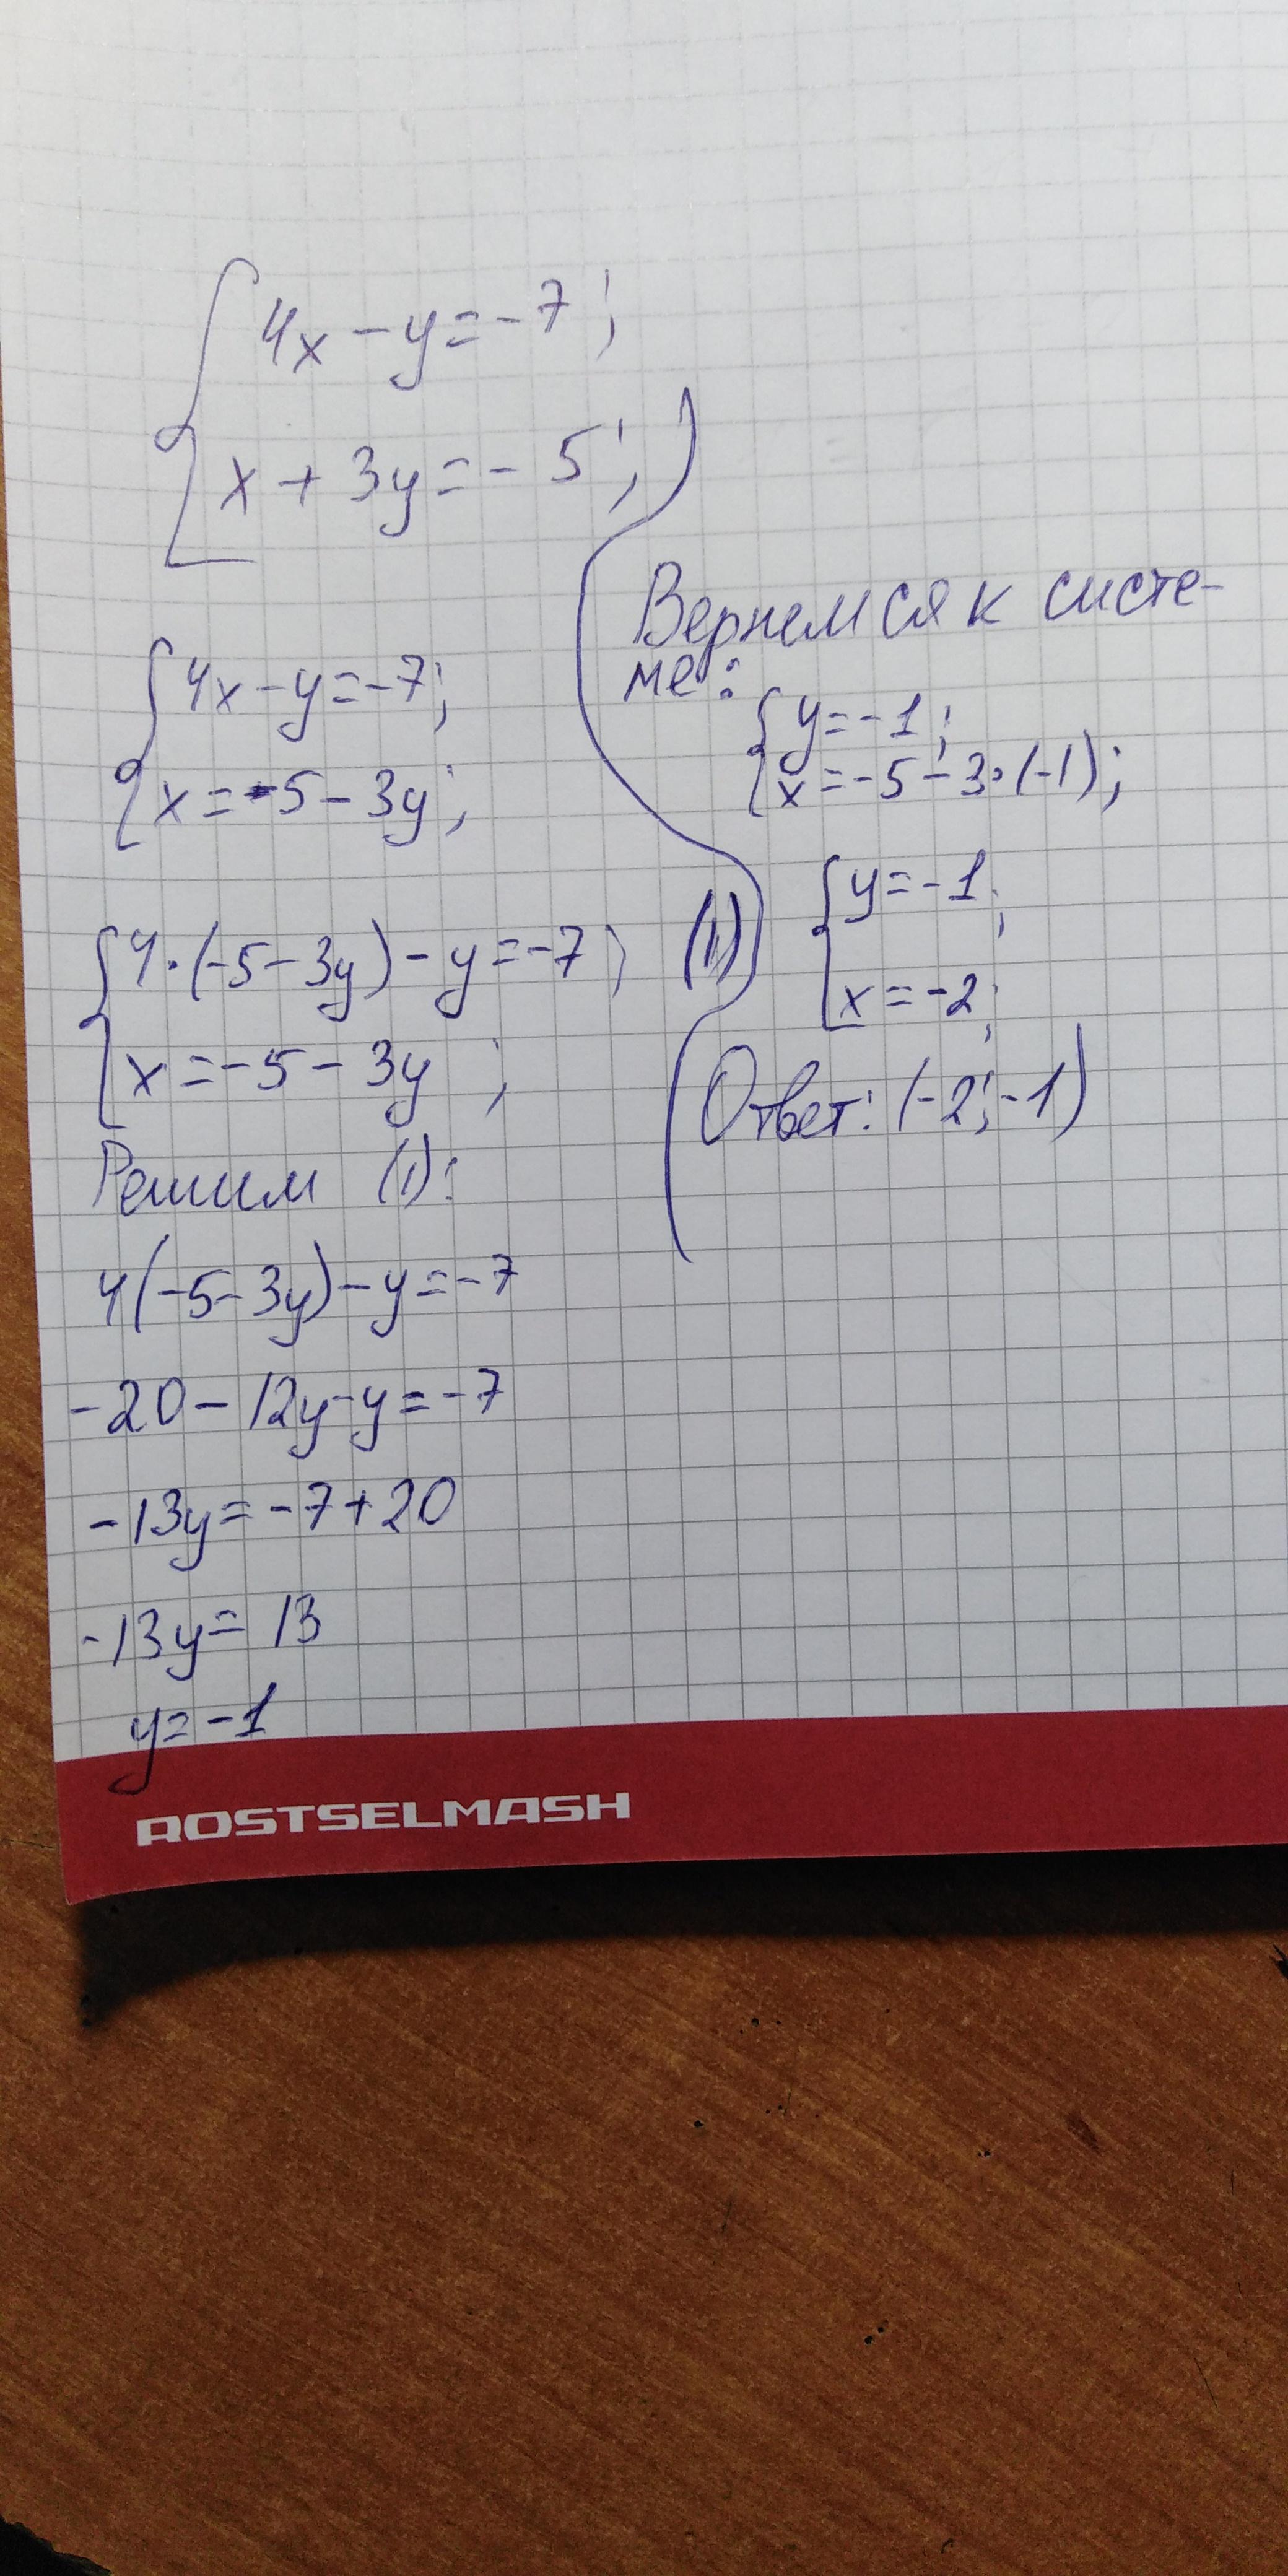 4x-y=-7;
x+3y=-5;
4x-y=-7;
x=-5-3y;
4·(-5-3y)-y=-7; (1)
x=-5-3y;
Решим (1):
4(-5-3y)-y=-7
-20-12y-y=-7
-13y=-7+20
-13y=13
y=-1
Вернемся к систе-
ме:
y=-1;
x=-5-3·(-1);
y=-1;
x=-2;
Ответ: (-2;-1)
ROSTSELMASH